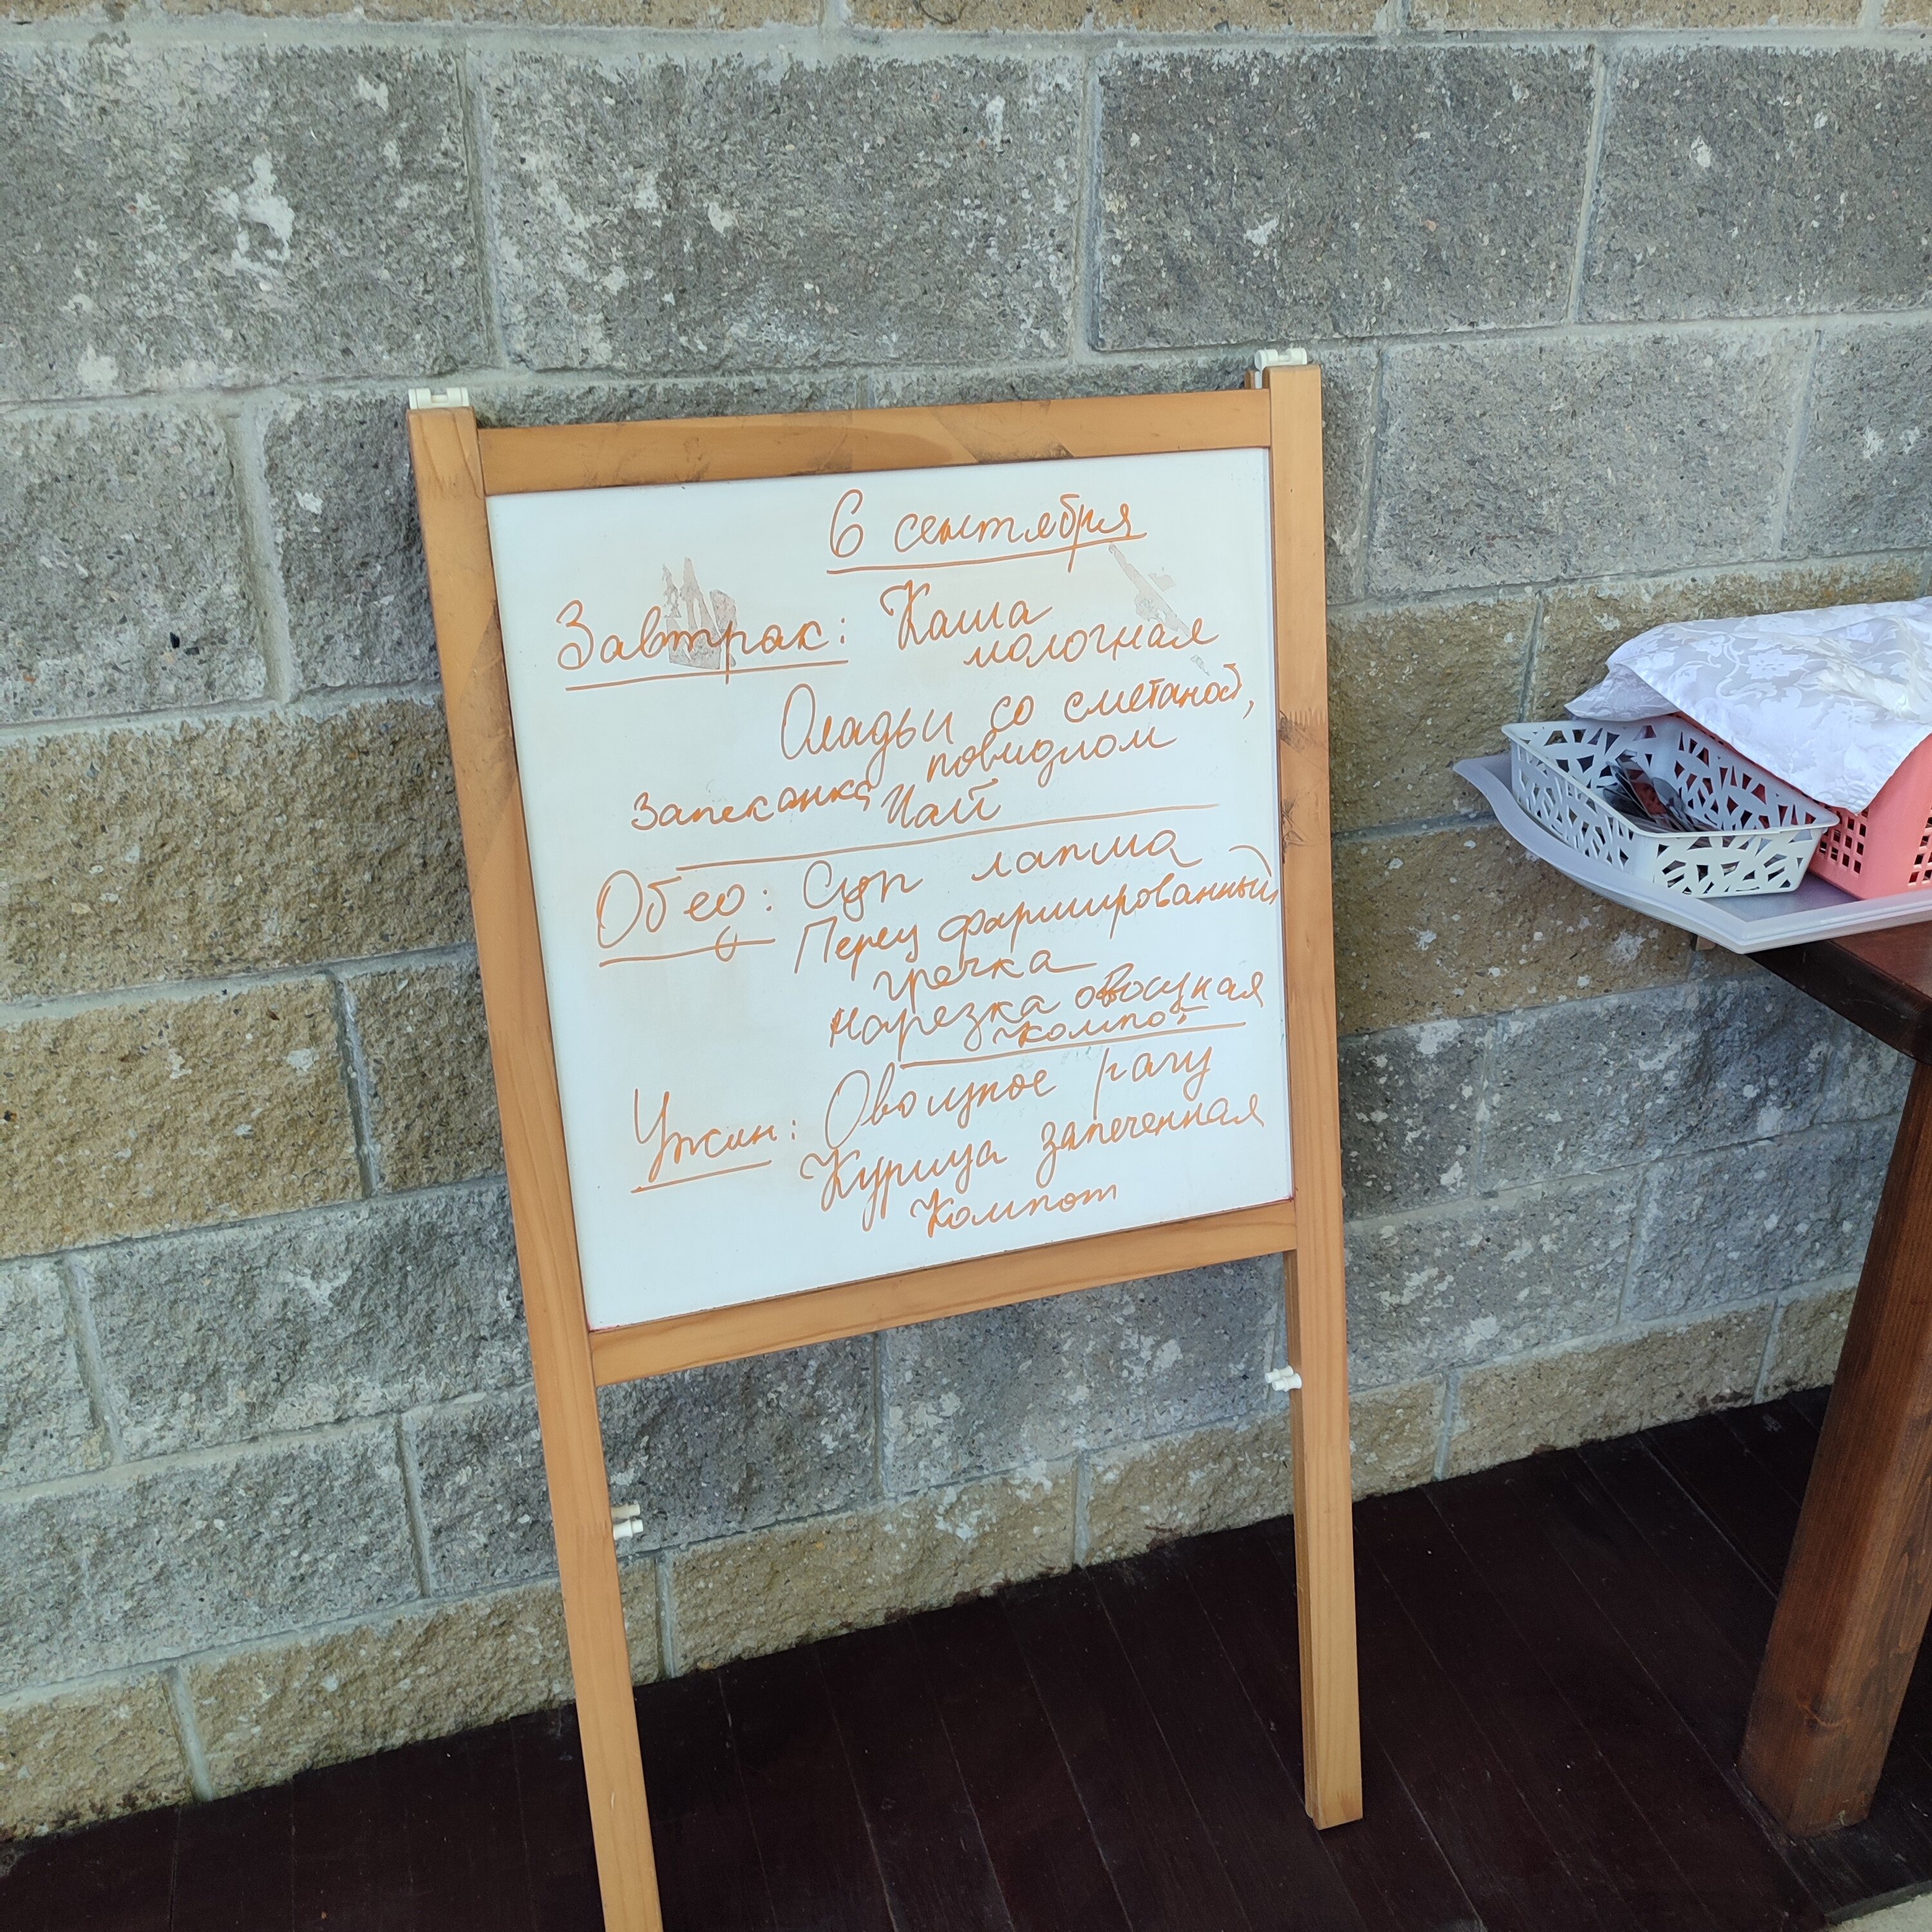 6 сентября
Завтрак: Каша
молочная
Оладьи со сметаной,
повидлом
Запеканка
Чай
Обед: Суп лапша
Перец фаршированный
гречка
нарезка овощная
компот
Ужин: Овощное рагу
Курица запеченная
Компот